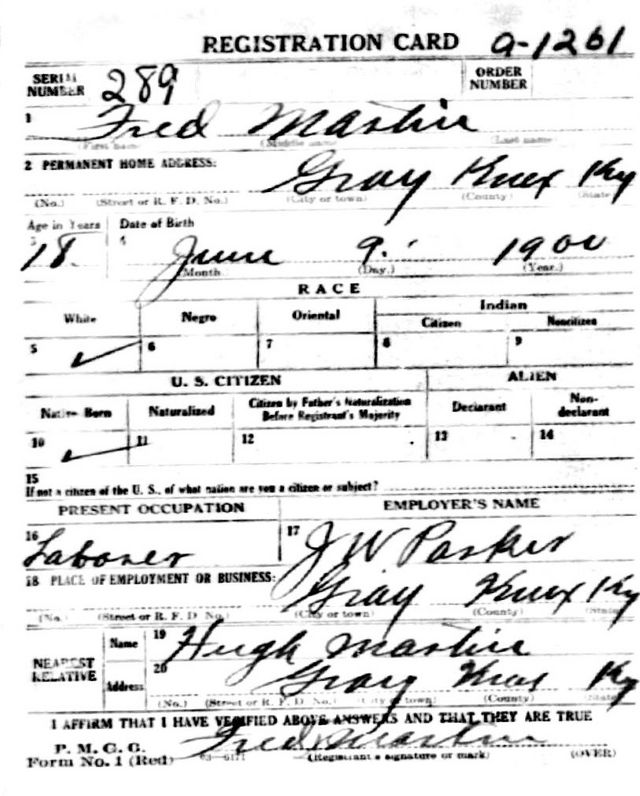 REGISTRATION CARD a-1261
SERIAL NUMBER 289 ORDER NUMBER
1 Fred Martin
(First name) (Middle name) (Last name)
2 PERMANENT HOME ADDRESS:
Gray Knox Ky
(No.) (Street or R. F. D. No.) (City or town) (County) (State)
Age in Years Date of Birth
3 4
18 June 9. 1900
(Month (Day.) (Year.)
RACE
White Negro Oriental Indian
Citizen Noncitizen
5 ✓ 6 7 8 9
U. S. CITIZEN ALIEN
Native Born Naturalized Citizen by Father's Naturalization Before Registrant's Majority Declarant Non-declarant
10 ✓ 11 12 13 14
15
If not a citizen of the U. S., of what nation are you a citizen or subject?
PRESENT OCCUPATION EMPLOYER'S NAME
16 Laborer 17 J W Parker
18 PLACE OF EMPLOYMENT OR BUSINESS:
Gray Knox Ky
(No.) (Street or R. F. D. No.) (City or town) (County) (State)
NEAREST RELATIVE Name 19 Hugh Martin
Address 20 Gray Knox Ky
(No.) (Street or R. F. D. No.) (City or town) (County) (State)
I AFFIRM THAT I HAVE VERIFIED ABOVE ANSWERS AND THAT THEY ARE TRUE
P. M. G. O. Fred Martin
Form No. 1 (Red) 03-6171 (Registrant's signature or mark) (OVER)